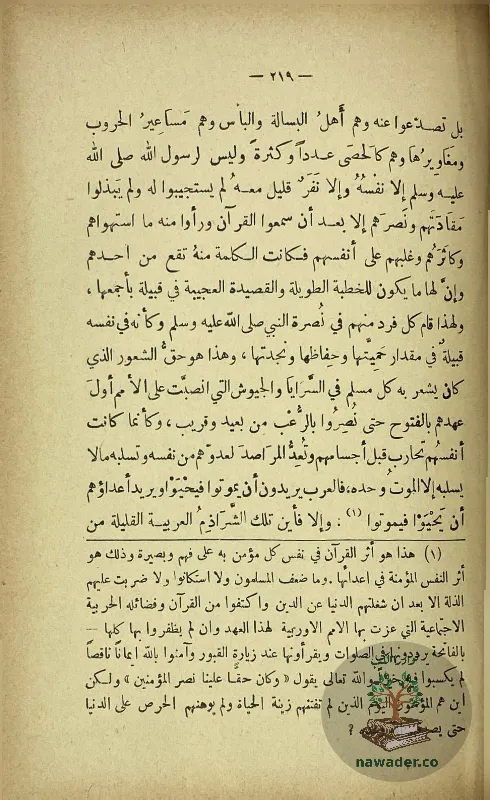 — ٢١٩ —
بل تصدّعوا عنه وهم أهلُ البسالة والبأس وهم مَساعيرُ الحروب
ومغاويرُها وهم كالحصَى عدداً وكثرةً وليس لرسول الله صلى الله
عليه وسلم إلا نفسُهُ وإلا نَفَرٌ قليل معهُ لم يستجيبوا له ولم يَبذلوا
مَقَادَتهم ونَصرَهم إلا بعد أن سمعوا القرآن ورأوا منه ما استهواهم
وكاثَرَهُم وغلبهم على أنفسهم فكانت الكلمة منهُ تقع من أحدهم
وإنَّ لها ما يكون للخطبة الطويلة والقصيدة العجيبة في قبيلة بأجمعها ،
ولهذا قام كل فرد منهم في نُصرة النبي صلى الله عليه وسلم وكأنه في نفسه
قبيلةٌ في مقدار حَمِيَّتها وحِفاظها ونجدتها ، وهذا هو حقُّ الشعور الذي
كان يشعر به كل مسلم في السَّرَايا والجيوش التي انصبَّت على الأمم أولَ
عهدهم بالفتوح حتى نُصِرُوا بالرُّعْب من بعيد وقريب ، وكأنما كانت
أنفسُهم تحارب قبل أجسامهم وتُعِدُّ المرَاصدَ لعدوّهم من نفسه وتسلبه مالا
يسلبه إلا الموتُ وحده، فالعرب يريدون أن يموتوا فيَحْيَوْا ويريد أعداؤهم
أن يَحْيَوْا فيموتوا (١) . وإلا فأين تلك الشَّراذِمُ العربية القليلة من
(١) هذا هو أثر القرآن في نفس كل مؤمن به على فهم وبصيرة وذلك هو
أثر النفس المؤمنة في اعدائها . وما ضعف المسلمون ولا استكانوا ولا ضربت عليهم
الذلة الا بعد ان شغلتهم الدنيا عن الدين واكتفوا من القرآن وفضائله الحربية
الاجتماعية التي عزت بها الامم الاوربية لهذا العهد وان لم يظفروا بها كلها —
بالفاتحة يرددونها في الصلوات ويقرأونها عند زيارة القبور وآمنوا بالله ايماناً ناقصاً
لم يكسبوا فيه والله تعالى يقول « وكان حقاً علينا نصر المؤمنين » ولكن
اين هم المؤمنون اليوم الذين لم تفتنهم زينة الحياة ولم يوهنهم الحرص على الدنيا
حتى ؟
نوادر الكتب
nawader.co